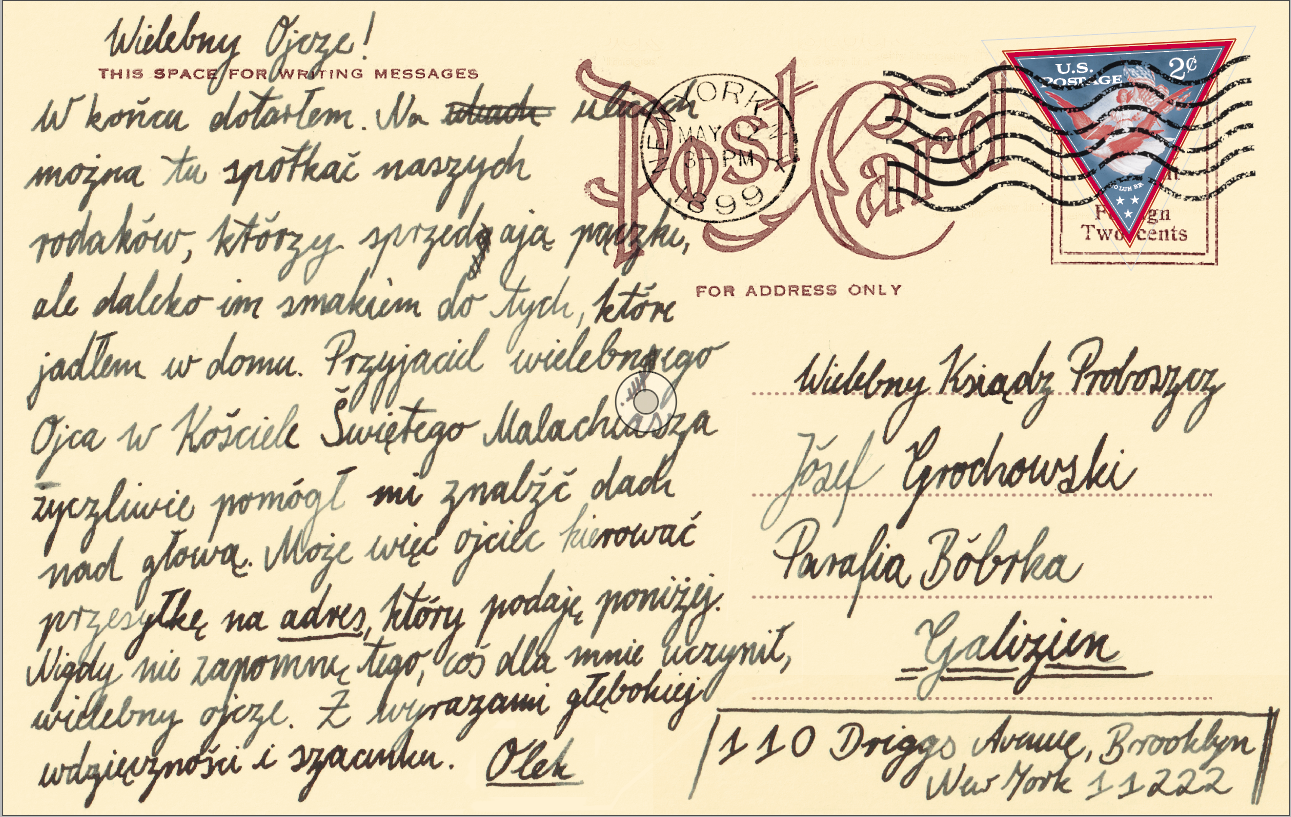 Wielebny Ojcze!
THIS SPACE FOR WRITING MESSAGES
W końcu dotarłem. Na ulicach
można tu spotkać naszych
rodaków, którzy sprzedają pączki,
ale daleko im smakiem do tych, które
jadłem w domu. Przyjaciel wielebnego
Ojca w Kościele Świętego Malachiasza
życzliwie pomógł mi znaleźć dach
nad głową. Może więc ojciec kierować
przesyłkę na adres, który podaję poniżej.
Nigdy nie zapomnę tego, coś dla mnie uczynił,
wielebny ojcze. Z wyrazami głębokiej
wdzięczności i szacunku. Olek
Post Card
NEW YORK N.Y.
MAY 12
PM
1899
U.S. POSTAGE 2¢
Two cents
FOR ADDRESS ONLY
Wielebny Ksiądz Proboszcz
Józef Grochowski
Parafia Bóbrka
Galizien
110 Driggs Avenue, Brooklyn
New York 11222